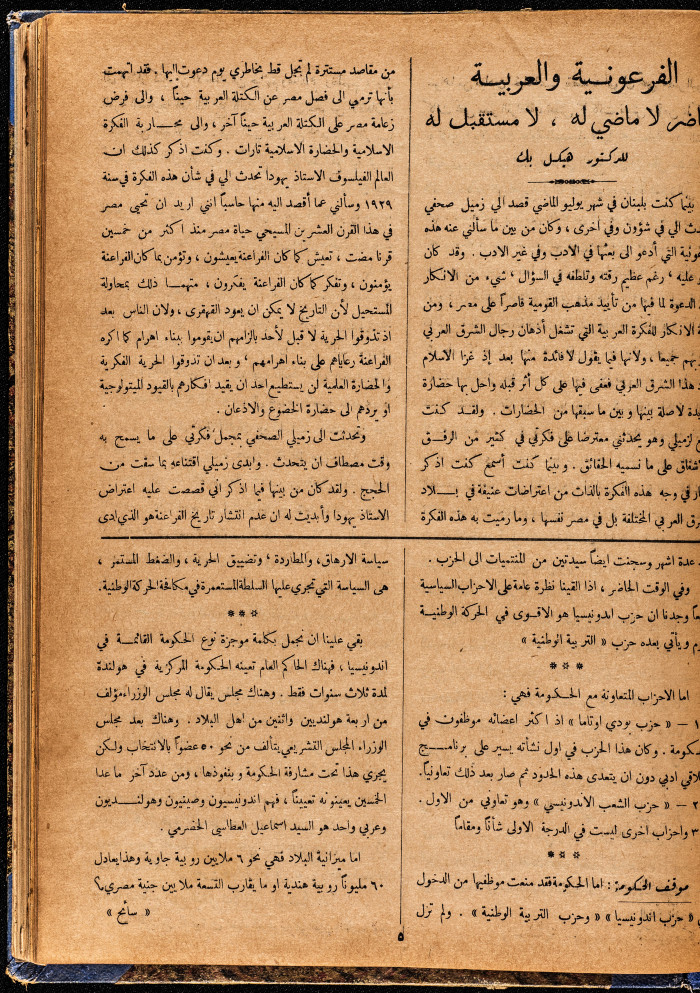 الفرعونية والعربية
لا ماضي له ، لا مستقبل له
للدكتور هيكل بك
بينما كنت بلبنان في شهر يوليو الماضي قصد الي زميل صحفي
الي في شؤون وفي أخرى ، وكان من بين ما سألني عنه هذه
التي أدعو الى بعثها في الادب وفي غير الادب . وقد كان
عليه ، رغم عظيم رقته وتلطفه في السؤال ، شيء من الانكار
الدعوة لما فيها من تأييد مذهب القومية قاصراً على مصر ، ومن
الانكار للفكرة العربية التي تشغل أذهان رجال الشرق العربي
جميعا ، ولانها فيما يقول لا فائدة منها بعد إذ غزا الاسلام
هذا الشرق العربي فعفى فيها على كل أثر قبله واحل بها حضارة
لا صلة بينها وبين ما سبقها من الحضارات . ولقد كنت
لزميلي وهو يحدثني معترضا على فكرتي في كثير من الرفق
على ما نسميه الحقائق . وبينما كنت أسمع كنت اذكر
في وجه هذه الفكرة بالذات من اعتراضات عنيفة في بلاد
العربي المختلفة بل في مصر نفسها ، وما رميت به هذه الفكرة
من مقاصد مستترة لم تجل قط بخاطري يوم دعوت اليها . فقد اتهمت
بأنها ترمي الى فصل مصر عن الكتلة العربية حيناً ، والى فرض
زعامة مصر على الكتلة العربية حيناً آخر ، والى محاربة الفكرة
الاسلامية والحضارة الاسلامية تارات . وكنت اذكر كذلك ان
العالم الفيلسوف الاستاذ يهودا تحدث الي في شأن هذه الفكرة في سنة
١٩٢٩ وسألني عما أقصد اليه منها حاسباً انني اريد ان تحيي مصر
في هذا القرن العشرين المسيحي حياة مصر منذ اكثر من خمسين
قرنا مضت ، تعيش كما كان الفراعنة يعيشون ، وتؤمن بما كان الفراعنة
يؤمنون ، وتفكر كما كان الفراعنة يفكرون ، متهما ذلك بمحاولة
المستحيل لأن التاريخ لا يمكن ان يعود القهقرى ، ولان الناس بعد
اذ تذوقوا الحرية لا قبل لأحد بالزامهم ان يقوموا ببناء اهرام كما اكره
الفراعنة رعاياهم على بناء اهرامهم ، وبعد ان تذوقوا الحرية الفكرية
والحضارة العلمية لن يستطيع احد ان يقيد افكارهم بالقيود الميتولوجية
او يردهم الى حضارة الخضوع والاذعان .
وتحدثت الى زميلي الصحفي بمجمل فكرتي على ما يسمح به
وقت مصطاف ان يتحدث . وابدى زميلي اقتناعه بما سقت من
الحجج . ولقد كان من بينها فيما اذكر اني قصصت عليه اعتراض
الاستاذ يهودا وأبديت له ان عدم انتشار تاريخ الفراعنة هو الذي ادى
. عدة اشهر وسجنت ايضاً سيدتين من المنتميات الى الحزب .
وفي الوقت الحاضر ، اذا القينا نظرة عامة على الاحزاب السياسية
وجدنا ان حزب اندونيسيا هو الاقوى في الحركة الوطنية
ويأتي بعده حزب « التربية الوطنية »
***
اما الاحزاب المتعاونة مع الحكومة فهي :
١ — « حزب بودي اوتاما » اذ اكثر اعضائه موظفون في
. وكان هذا الحزب في اول نشأته يسير على برنامج
ادبي دون ان يتعدى هذه الحدود ثم صار بعد ذلك تعاونياً .
٢ — « حزب الشعب الاندونيسي » وهو تعاوني من الاول .
٣ واحزاب اخرى ليست في الدرجة الاولى شأناً ومقاماً
***
موقف الحكومة : اما الحكومة فقد منعت موظفيها من الدخول
« حزب اندونيسيا » « وحزب التربية الوطنية » . ولم تزل
سياسة الارهاق ، والمطاردة ، وتضييق الحرية ، والضغط المستمر ،
هى السياسة التي تجري عليها السلطة المستعمرة في مكافحة الحركة الوطنية .
***
بقي علينا ان نجمل بكلمة موجزة نوع الحكومة القائمة في
اندونيسيا ، فهناك الحاكم العام تعينه الحكومة المركزية في هولندة
لمدة ثلاث سنوات فقط . وهناك مجلس يقال له مجلس الوزراء مؤلف
من اربعة هولنديين واثنين من اهل البلاد . وهناك بعد مجلس
الوزراء المجلس التشريعي يتألف من نحو ٥٠ عضواً بالانتخاب ولكن
يجري هذا تحت مشارفة الحكومة وبنفوذها ، ومن عدد آخر ما عدا
الخمسين يعينونه تعييناً ، فهم اندونيسيون وصينيون وهولنديون
وعربي واحد هو السيد اسماعيل العطاسي الحضرمي .
اما ميزانية البلاد فهي نحو ٦ ملايين روبية جاوية وهذا يعادل
٦٠ مليوناً روبية هندية او ما يقارب التسعة ملايين جنية مصري
« سائح »
٥